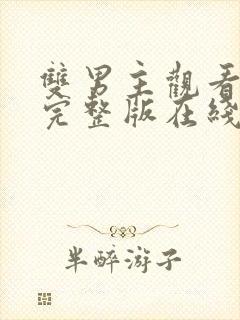 雙男主觀看
完整版在綫
半醉游子